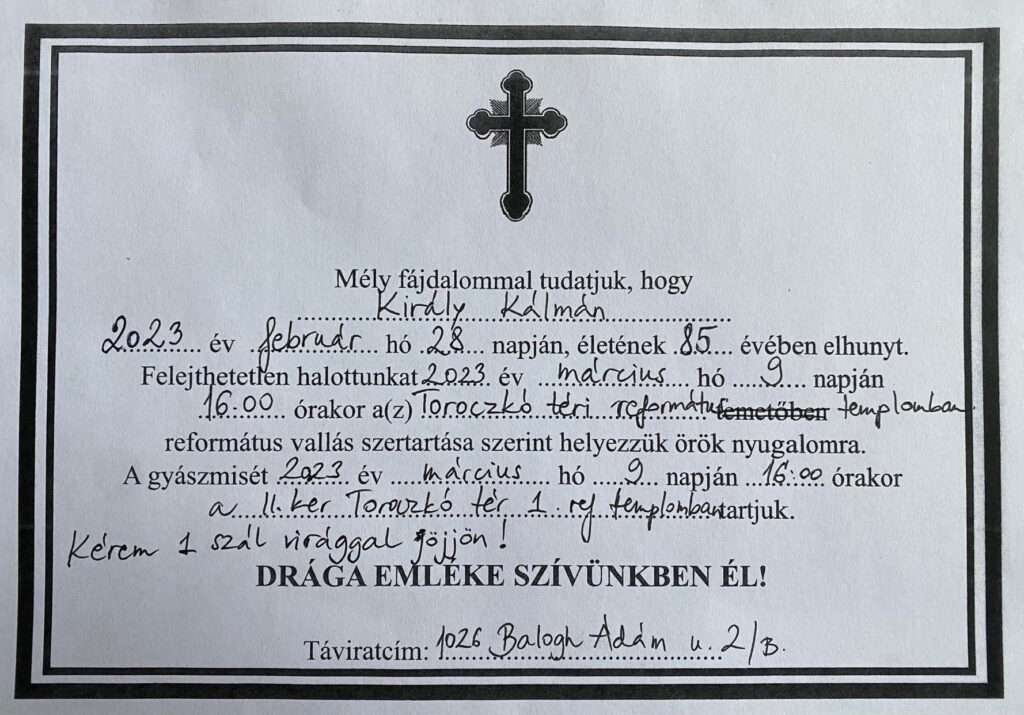 Mély fájdalommal tudatjuk, hogy
Király Kálmán
2023 év február hó 28 napján, életének 85 évében elhunyt.
Felejthetetlen halottunkat 2023 év március hó 9 napján
16:00 órakor a(z) Toroczkó téri református temetőben templomban
református vallás szertartása szerint helyezzük örök nyugalomra.
A gyászmisét 2023 év március hó 9 napján 16:00 órakor
a II. ker Toroczkó tér 1. ref templomban tartjuk.
Kérem 1 szál virággal jöjjön!
DRÁGA EMLÉKE SZÍVÜNKBEN ÉL!
Táviratcím: 1026 Balogh Ádám u. 2/B.